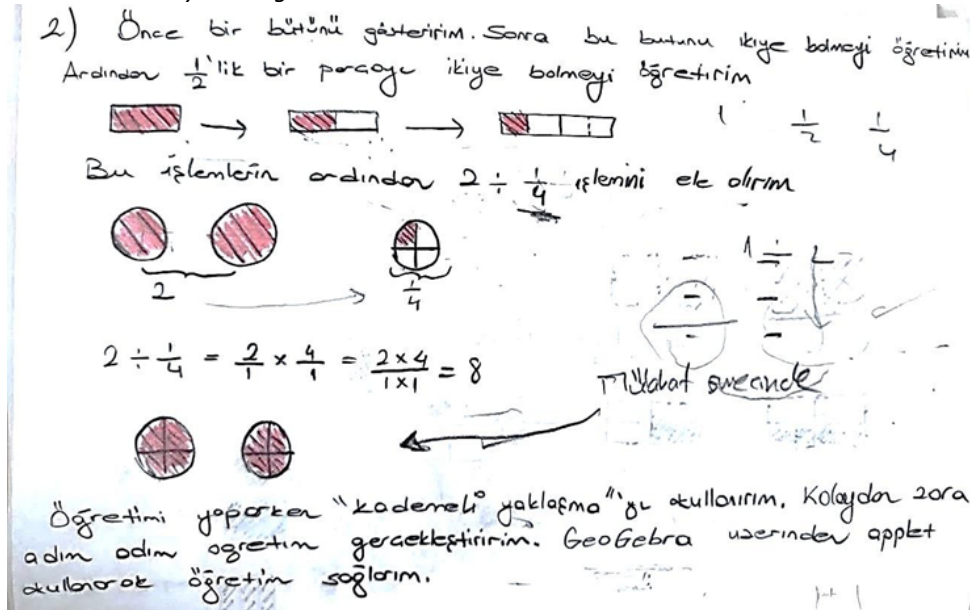 2) Önce bir bütünü gösteririm. Sonra bu butunu ikiye bolmeyi öğretirim
Ardından 1/2'lik bir parçayı ikiye bolmeyi öğretirim
1 1/2 1/4
Bu işlemlerin ardından 2 ÷ 1/4 işlemini ele alırım
2
1/4
2 ÷ 1/4 = 2/1 x 4/1 = 2x4/1x1 = 8
Mülakat sürecinde
Öğretimi yaparken "kademeli yaklaşma"yı kullanırım. Kolaydan zora
adım adım ogretim gerçekleştiririm. GeoGebra üzerinden applet
kullanarak öğretim sağlarım.